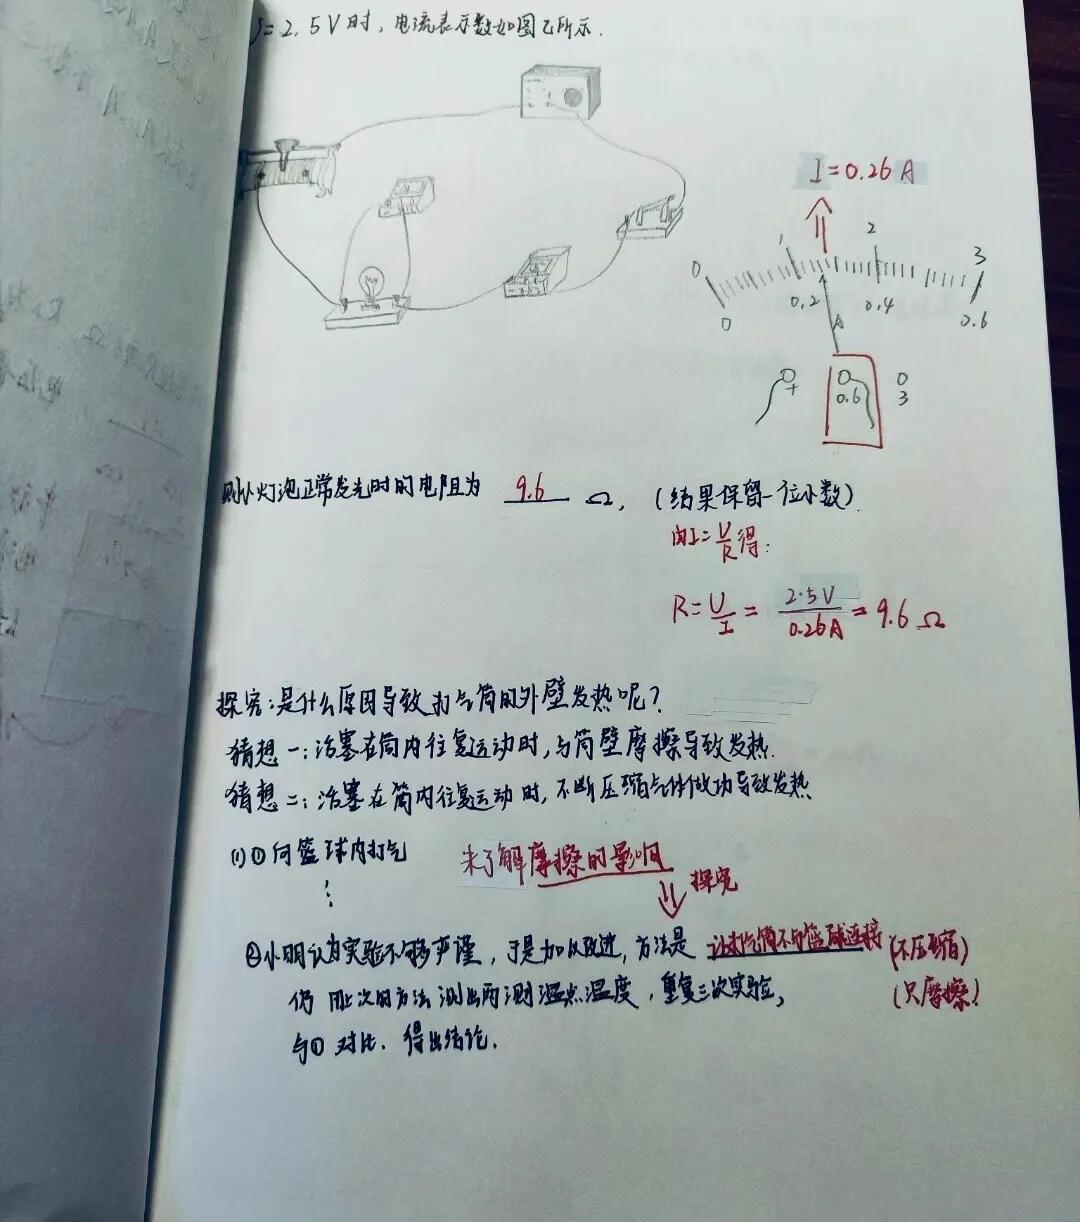 =2.5V时，电流表示数如图乙所示.
I=0.26 A
0 1 2 3
0 0.2 0.4 0.6
A
+ 0.6 3
则小灯泡正常发光时的电阻为 9.6 Ω，（结果保留一位小数）.
由I=U/R得:
R=U/I=2.5V/0.26A=9.6Ω
探究:是什么原因导致打气筒的外壁发热呢？
猜想一:活塞在筒内往复运动时,与筒壁摩擦导致发热.
猜想二:活塞在筒内往复运动时,不断压缩气体做功导致发热
(1)①向篮球内打气
未了解摩擦的影响
⋮
探究
②小明认为实验不够严谨，于是加以改进，方法是 让打气筒不与篮球连接 (不压缩)
仍用上次的方法测出两测温点温度，重复三次实验，
(只摩擦)
与①对比.得出结论.